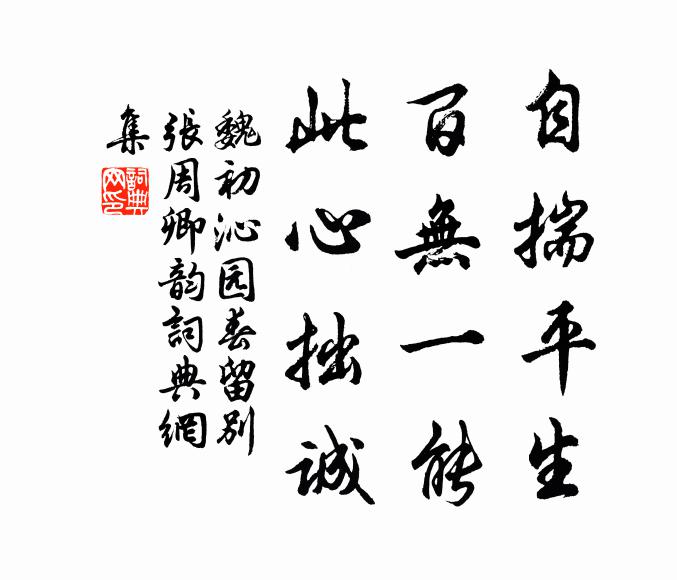 自揣平生
百無一能
此心拙誠
魏初沁园春留别
張周卿韵詞典網
集
詞典网印